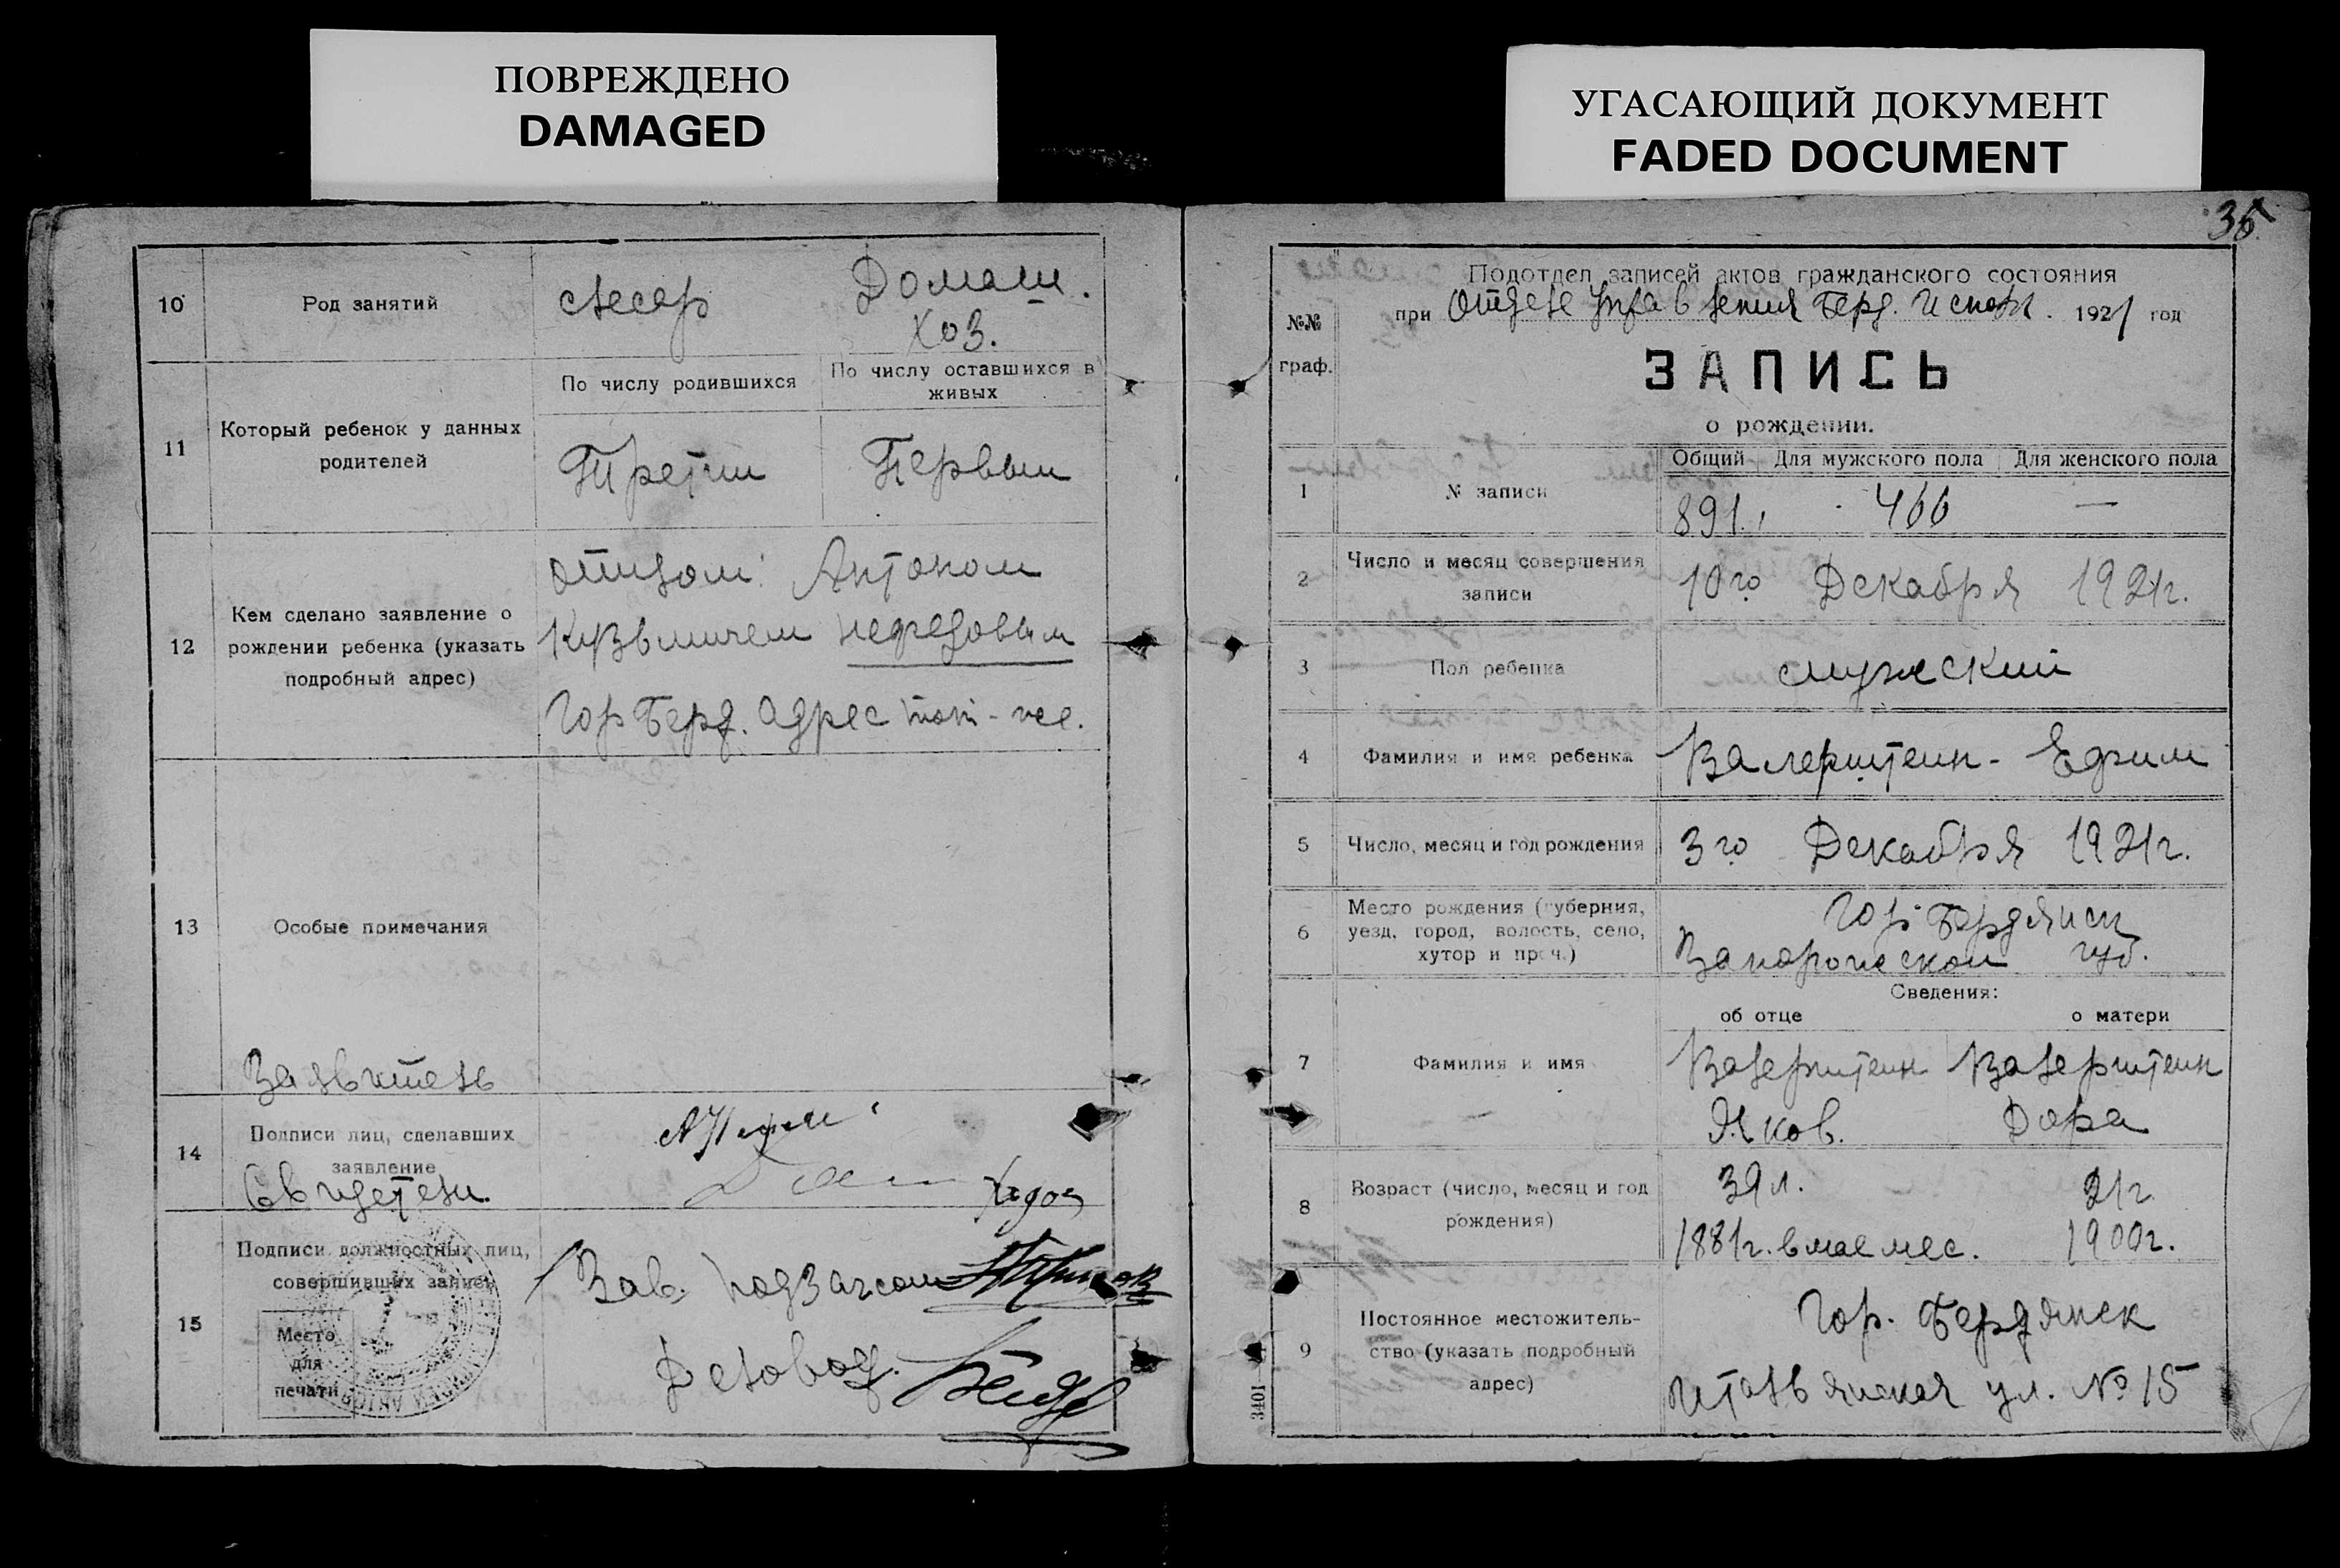 ПОВРЕЖДЕНО
DAMAGED
УГАСАЮЩИЙ ДОКУМЕНТ
FADED DOCUMENT
10 Род занятий слесар Домаш. хоз.
11 Который ребенок у данных родителей
По числу родившихся По числу оставшихся в живых
Третий Первый
12 Кем сделано заявление о рождении ребенка (указать подробный адрес)
Отцом: Антоном
Кузьмичем Нефедовым
Гор Берд. адрес тот-же.
13 Особые примечания
Заявитель
14 Подписи лиц, сделавших заявление
Свидетели
15 Подписи должностных лиц, совершивших запись
Место для печати
Зав. подзагсом
Деловод.
35
№№ граф.
Подотдел записей актов гражданского состояния
при Отделе Управления Берд. Исполк. 1921 год
ЗАПИСЬ
о рождении.
Общий Для мужского пола Для женского пола
1 № записи 891. 466 —
2 Число и месяц совершения записи 10го Декабря 1921г.
3 Пол ребенка мужский
4 Фамилия и имя ребенка Валерштейн - Ефим
5 Число, месяц и год рождения 3го Декабря 1921г.
6 Место рождения (губерния, уезд, город, волость, село, хутор и проч.)
Гор Бердянск
Запорожской губ.
Сведения:
об отце о матери
7 Фамилия и имя Валерштейн Валерштейн
Яков. Дора
8 Возраст (число, месяц и год рождения) 39 л. 21 г.
1881г. в мае мес. 1900г.
9 Постоянное местожительство (указать подробный адрес)
Гор. Бердянск
Итальянская ул. № 15
3401